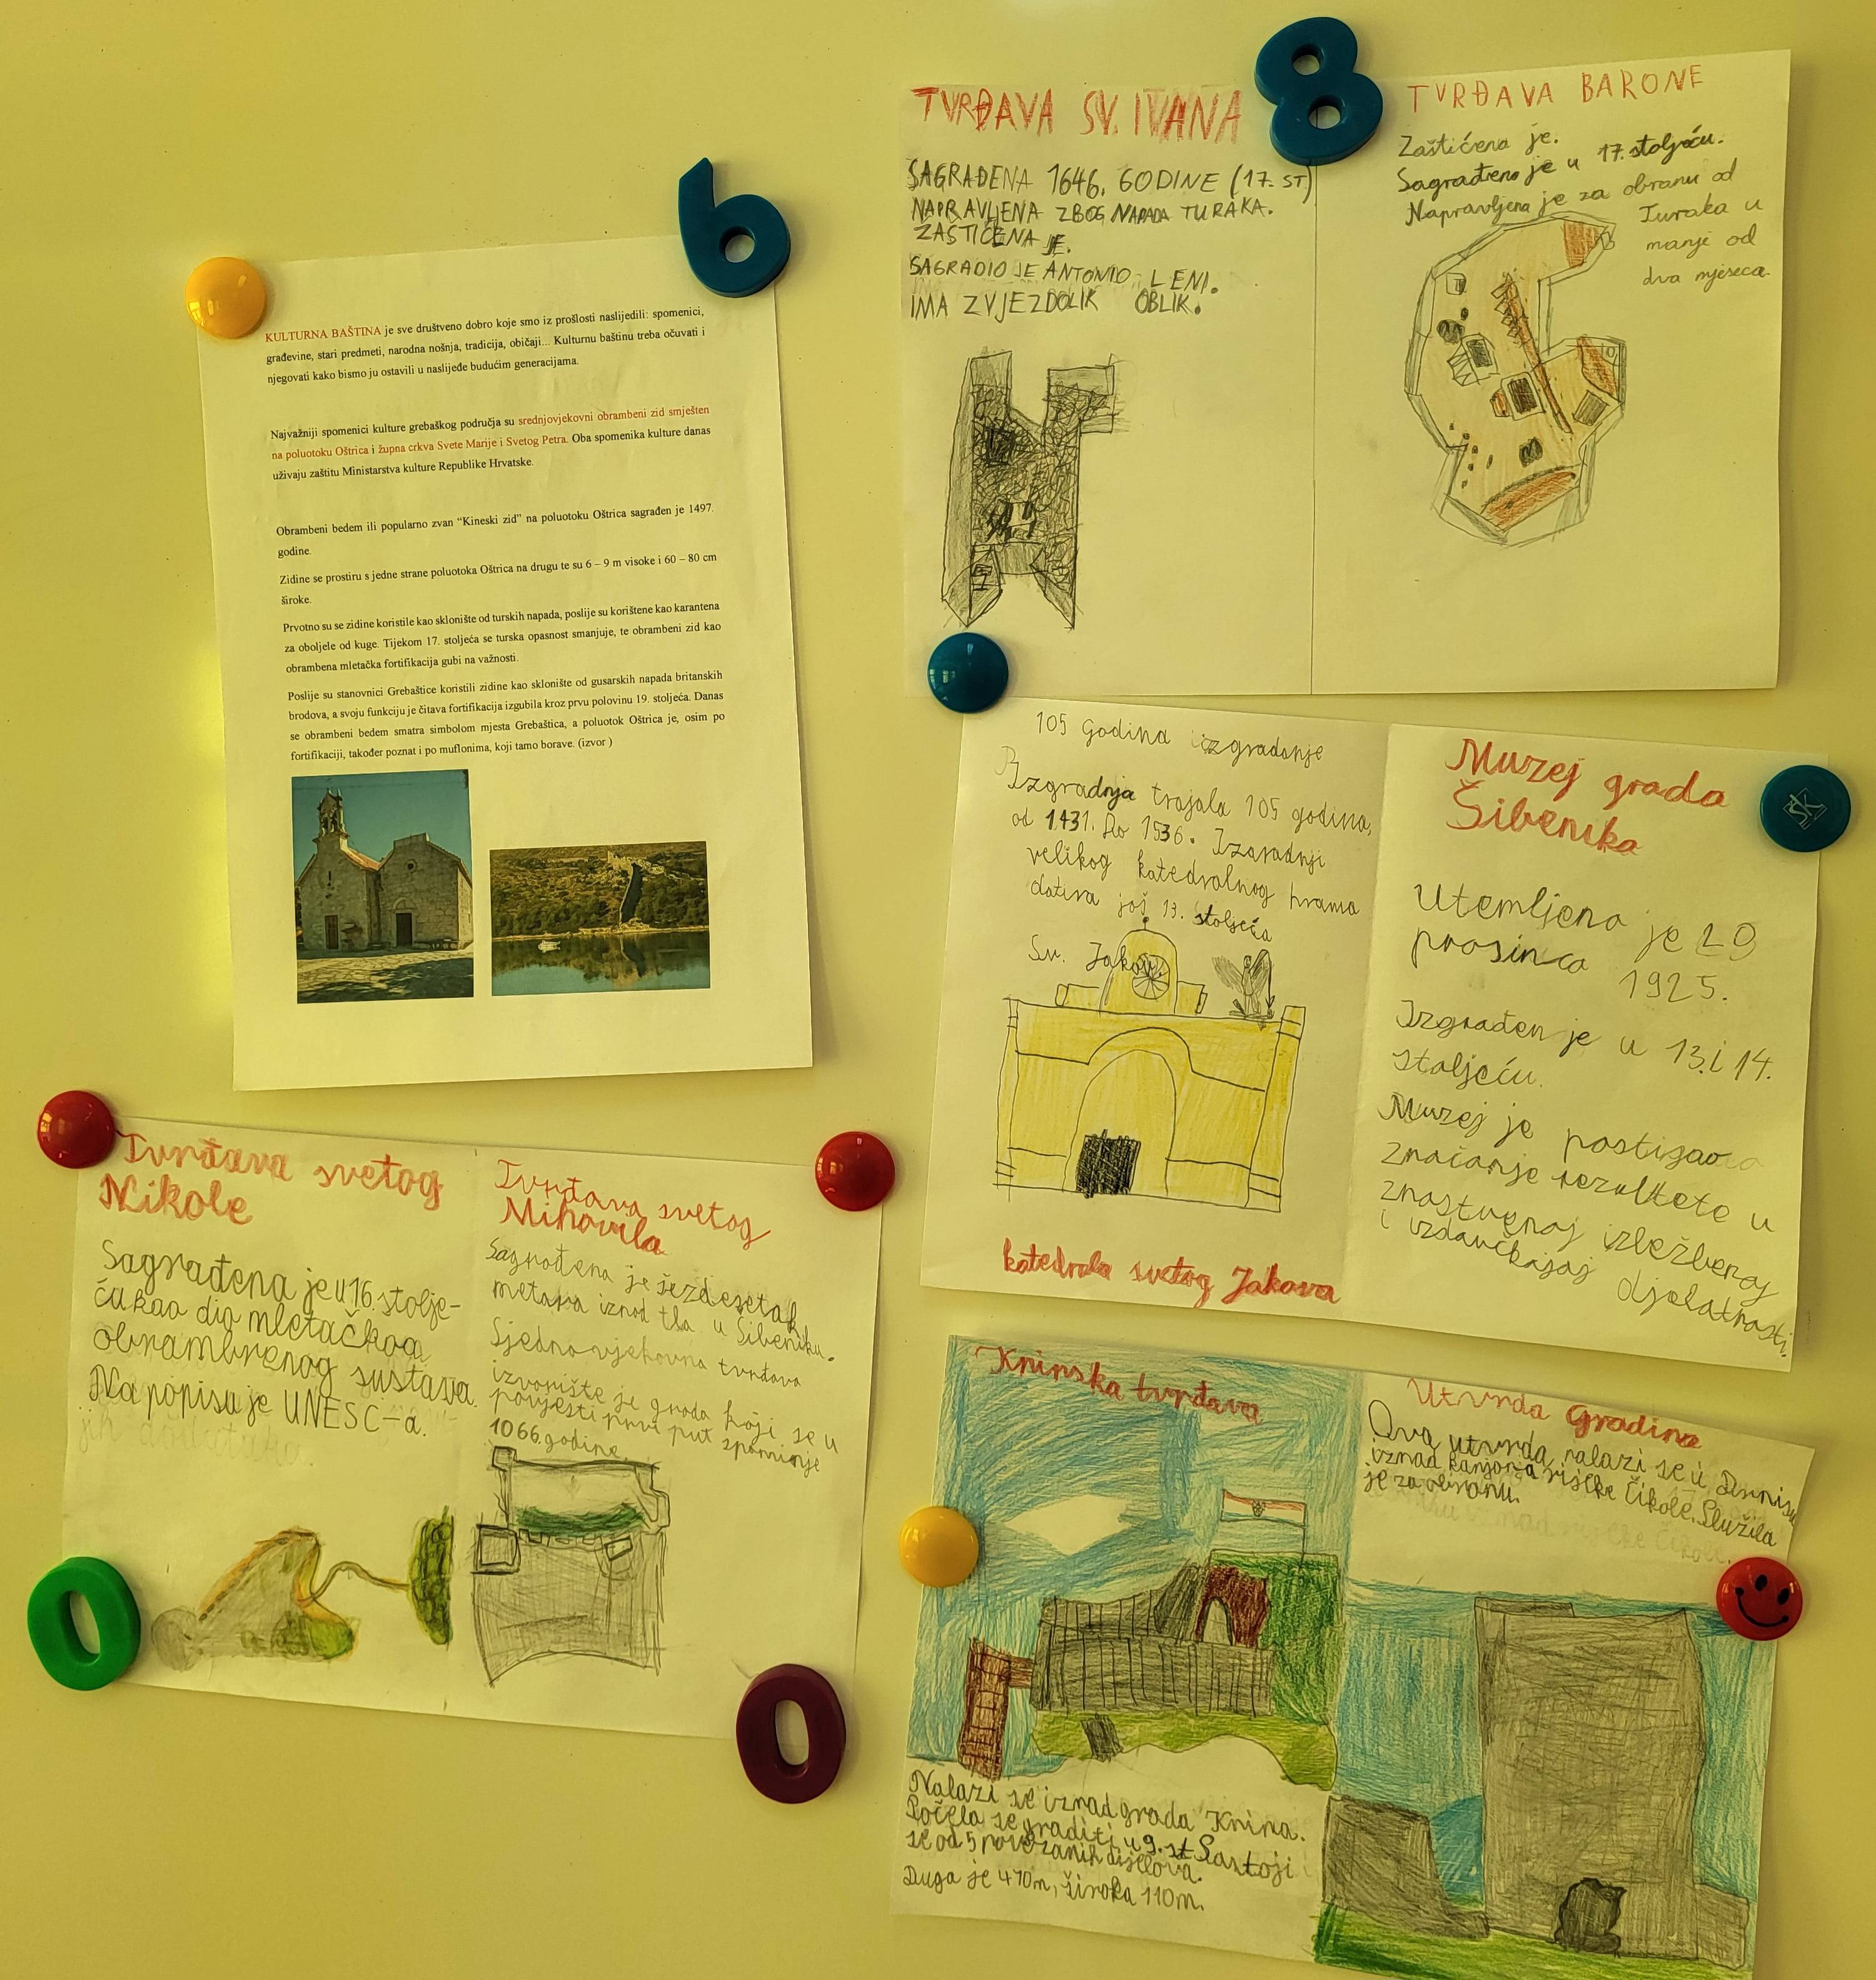 6
KULTURNA BAŠTINA je sve društveno dobro koje smo iz prošlosti naslijedili: spomenici,
građevine, stari predmeti, narodna nošnja, tradicija, običaji... Kulturnu baštinu treba očuvati i
njegovati kako bismo ju ostavili u naslijeđe budućim generacijama.
Najvažniji spomenici kulture grebaškog područja su srednjovjekovni obrambeni zid smješten
na poluotoku Oštrica i župna crkva Svete Marije i Svetog Petra. Oba spomenika kulture danas
uživaju zaštitu Ministarstva kulture Republike Hrvatske.
Obrambeni bedem ili popularno zvan “Kineski zid” na poluotoku Oštrica sagrađen je 1497.
godine.
Zidine se prostiru s jedne strane poluotoka Oštrica na drugu te su 6 – 9 m visoke i 60 – 80 cm
široke.
Prvotno su se zidine koristile kao sklonište od turskih napada, poslije su korištene kao karantena
za oboljele od kuge. Tijekom 17. stoljeća se turska opasnost smanjuje, te obrambeni zid kao
obrambena mletačka fortifikacija gubi na važnosti.
Poslije su stanovnici Grebaštice koristili zidine kao sklonište od gusarskih napada britanskih
brodova, a svoju funkciju je čitava fortifikacija izgubila kroz prvu polovinu 19. stoljeća. Danas
se obrambeni bedem smatra simbolom mjesta Grebaštica, a poluotok Oštrica je, osim po
fortifikaciji, također poznat i po muflonima, koji tamo borave. (izvor )
8
TVRĐAVA SV. IVANA
SAGRAĐENA 1646. GODINE (17. ST)
NAPRAVLJENA ZBOG NAPADA TURAKA.
ZAŠTIĆENA JE.
SAGRADIO JE ANTONIO LENI.
IMA ZVJEZDOLIK OBLIK.
TVRĐAVA BARONE
Zaštićena je.
Sagrađena je u 17. stoljeću.
Napravljena je za obranu od
Turaka u
manje od
dva mjeseca.
105 Godina izgradnje
Izgradnja trajala 105 godina,
od 1431. do 1536. Izgradnji
velikog katedralnog hrama
datira još 13. stoljeća
Sv. Jakov
katedrala svetog Jakova
Muzej grada
Šibenika
Utemljeno je 29
prosinca
1925.
Izgrađen je u 13. i 14.
stoljeću.
Muzej je postigao
značanje rezultete u
znastvenoj izležbenoj
i izdavčkajoj djelatnosti.
Tvrđava svetog
Nikole
Sagrađena je u 16. stolje-
ću kao dio mletačkog
obrambrenog sustava.
Na popisu je UNESC-a.
0
Tvrđava svetog
Mihovila
Sagrađena je šezdesetak
metara iznad tla u Šibeniku.
Sjedno-vjekovna tvrđava
izvorište je grada koji se u
povjesti prvi put spominje
1066. godine.
0
Kninska tvrđava
Nalazi se iznad grada Knina.
Počela se graditi u 9. st Sastoji
se od 5 povezanih dijelova.
Duga je 470m, široka 110m.
Utvrda Gradina
Ova utvrda nalazi se u Drnišu
iznad kanjona rijeke Čikole. Služila
je za obranu.